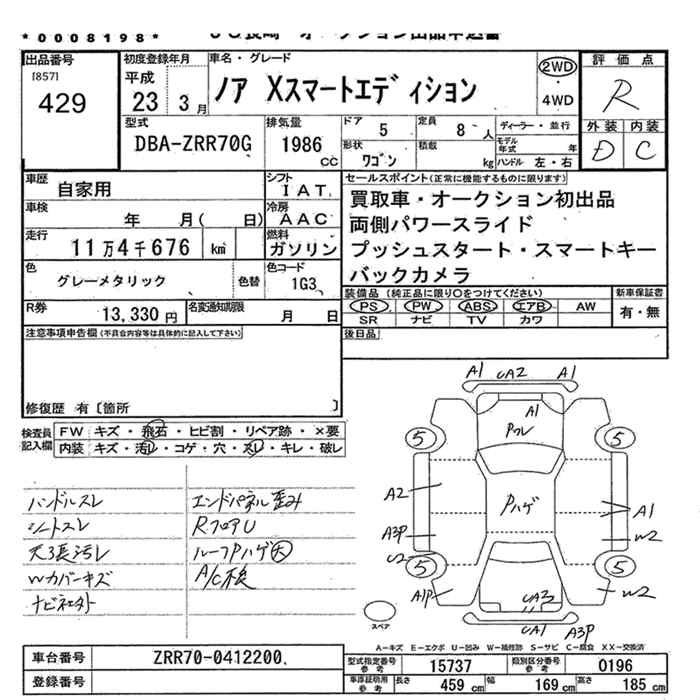 *0008198*
出品番号
[857]
429
初度登録年月
平成
23 3月
車名・グレード
ノア Xスマートエディション
2WD
・
4WD
評価点
R
外装 内装
D C
型式
DBA-ZRR70G
排気量
1986
cc
ドア 5
定員 8人
形状 ワゴン
積載 kg
ディーラー・並行
モデル年式 年
ハンドル 左・右
車歴
自家用
シフト
IAT
車検
年 月( 日)
冷房
AAC
走行
11万4千676 km
燃料
ガソリン
色
グレーメタリック
色替
色コード
1G3
R券
13,330円
名変通知期限
月 日
セールスポイント(正常に機能するものに限ります)
買取車・オークション初出品
両側パワースライド
プッシュスタート・スマートキー
バックカメラ
装備品(純正品に限り○をつけてください)
PS PW ABS エアB AW
SR ナビ TV カワ
新車保証書
有・無
後日品
注意事項申告欄(不具合内容等は具体的に記入して下さい)
修復歴 有〔箇所 〕
検査員
記入欄
FW キズ・飛石・ヒビ割・リペア跡・×要
内装 キズ・汚レ・コゲ・穴・スレ・キレ・破レ
ハンドルスレ
シートスレ
天張汚レ
Wカバーキズ
エンドパネル歪み
RフロアU
ルーフPハゲ大
A1 UA2 A1
A1
Pフレ
5 5
A2
Pハゲ
A1
A3P
W2
U2
5 5
A1P
W2
UA3
UA1 A3P
スペア
A−キズ E−エクボ U−凹み W−補修跡 S−サビ C−腐食 XX−交換済
車台番号
ZRR70-0412200
登録番号
型式指定番号
参考
15737
類別区分番号
参考
0196
車庫証明用
参考
長さ 459cm
幅 169cm
高さ 185cm